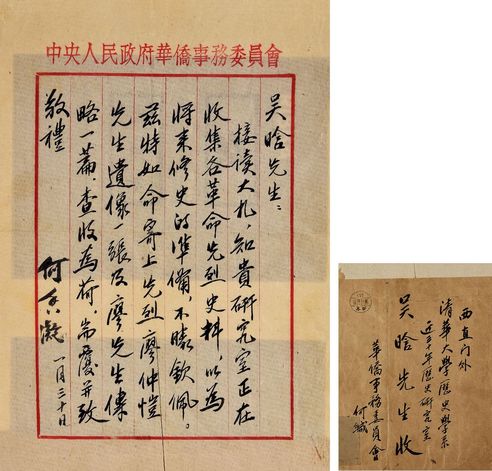 中央人民政府華僑事務委員會
吴晗先生：
接读大札，知貴研究室正在
收集各革命先烈史料，以為
将来修史的準備，不勝欽佩。
茲特如命寄上先烈廖仲愷
先生遺像一張及廖先生傳
略一篇，查收為荷，耑覆并致
敬禮
何香凝 一月三十日
西直门外
清華大學歷史學系
近五十年歷史研究室
吴晗先生收
華僑事務委員會
何緘